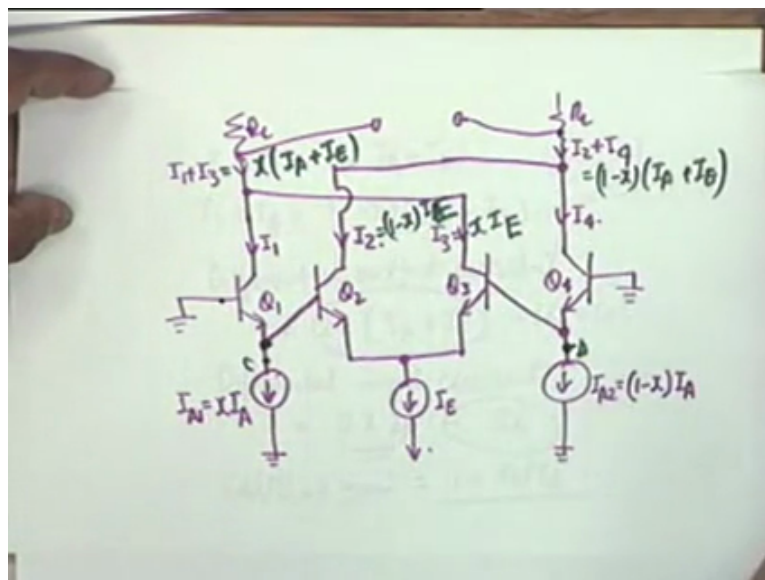 R_L
R_L
I_1+I_3= x(I_A+I_E)
I_2+I_4
=(1-x)(I_A+I_E)
I_1
I_2=(1-x)I_E
I_3=xI_E
I_4
Q_1
Q_2
Q_3
Q_4
C
D
I_A1=xI_A
I_E
I_A2=(1-x)I_A